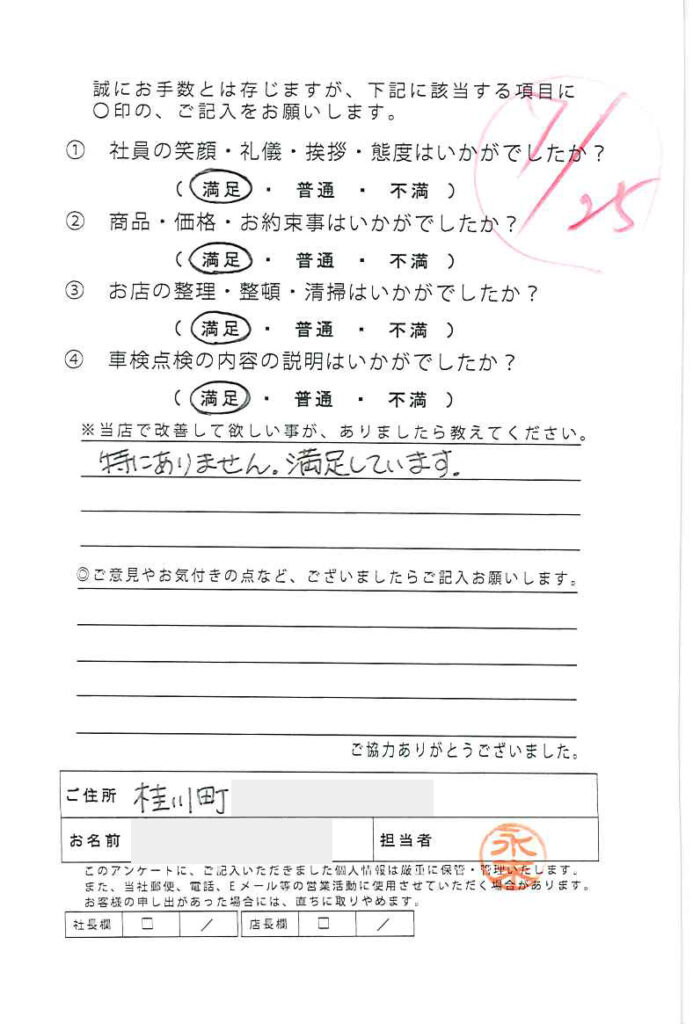 誠にお手数とは存じますが、下記に該当する項目に
〇印の、ご記入をお願いします。
7/25
① 社員の笑顔・礼儀・挨拶・態度はいかがでしたか？
( 満足 ・ 普通 ・ 不満 )
② 商品・価格・お約束事はいかがでしたか？
( 満足 ・ 普通 ・ 不満 )
③ お店の整理・整頓・清掃はいかがでしたか？
( 満足 ・ 普通 ・ 不満 )
④ 車検点検の内容の説明はいかがでしたか？
( 満足 ・ 普通 ・ 不満 )
※当店で改善して欲しい事が、ありましたら教えてください。
特にありません。満足しています。
◎ご意見やお気付きの点など、ございましたらご記入お願いします。
ご協力ありがとうございました。
ご住所 桂川町
お名前 担当者
このアンケートに、ご記入いただきました個人情報は厳重に保管・管理いたします。
また、当社郵便、電話、Eメール等の営業活動に使用させていただく場合があります。
お客様の申し出があった場合には、直ちに取りやめます。
社長欄 □ / 店長欄 □ /